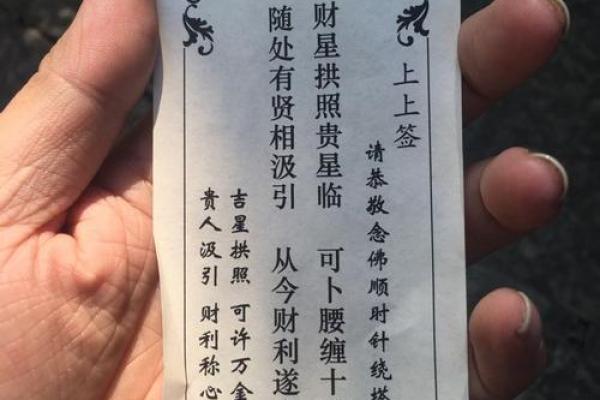 上上签
请恭敬念佛顺时针绕塔
财星拱照贵星临 可卜腰缠十
随处有贤相汲引 从今财利遂
吉星拱照 可许万金
贵人汲引 财利称心